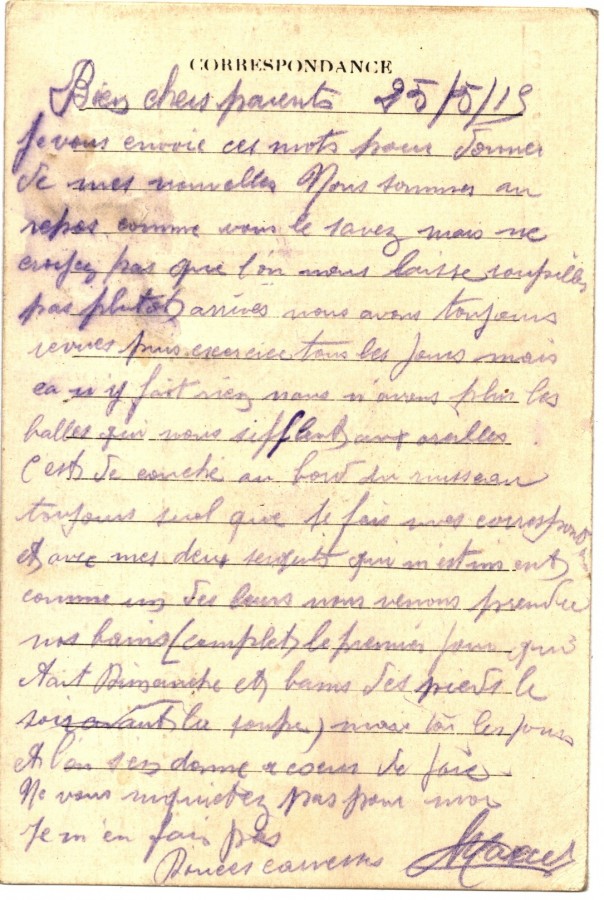 CORRESPONDANCE
Bien chers parents 25/5/15
Je vous envoie ces mots pour donner
de mes nouvelles Nous sommes au
repos comme vous le savez mais ne
croyez pas que l'on nous laisse
pas plutot arrivés nous avons toujours
revues puis exercice tous les jours mais
ca n'y fait rien nous n'avons plus les
balles qui nous sifflent aux oreilles.
C'est de couché au bord du ruisseau
toujours seul que je fais mes correspond
et avec mes deux sergents qui m'estiment
comme un des leurs nous venons prendre
nos bains (complet le premier jour qui
était Dimanche et bains des pieds le
soir avant la soupe) les jours
et l'on s'en donne a coeur de joie
Ne vous inquietez pas pour moi
Je m'en fais pas
Douces caresses Marcel